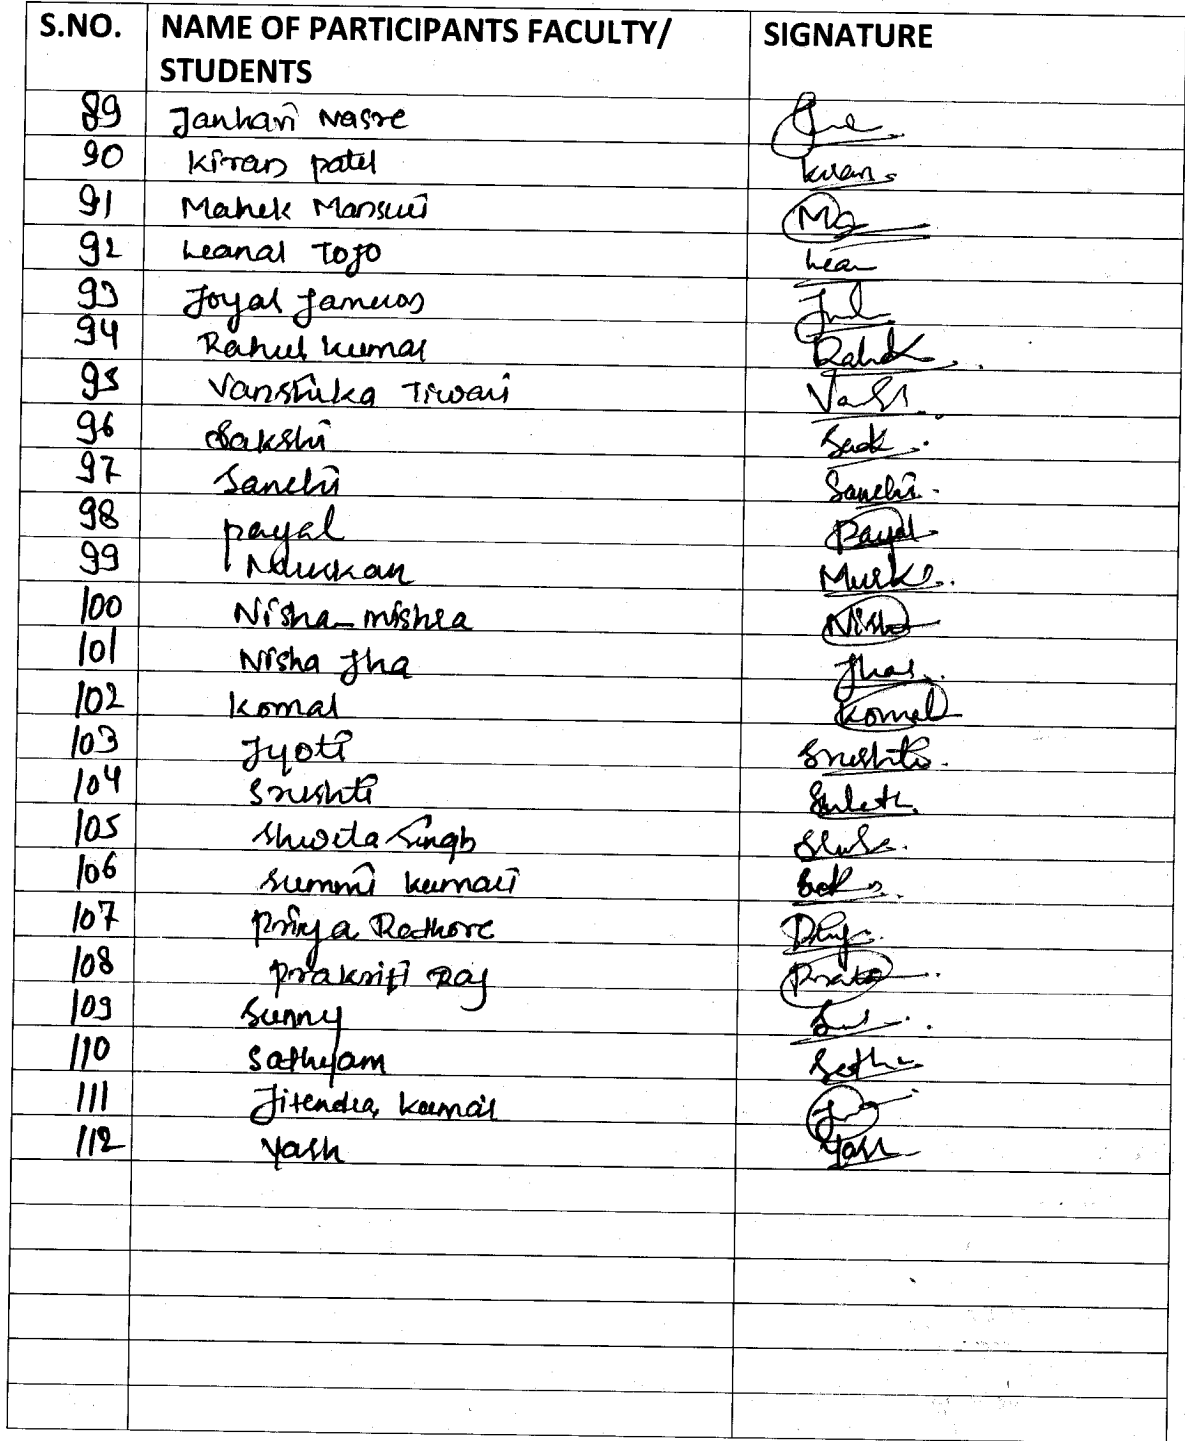 S.NO. NAME OF PARTICIPANTS FACULTY/ SIGNATURE
STUDENTS
89 Janhavi Nasre
90 Kiran patel Kiran
91 Mahek Mansuri Ma
92 Leanal Tojo Lea
93 Joyal
94 Rahul kumar
95 Vanshika Tiwari
96 Sakshi Sak
97 Sanchi Sanchi
98 payal Payal
99 Muskan Musk
100 Nisha mishra Nisha
101 Nisha Jha Jha
102 Komal Komal
103 Jyoti Srushti
104 Srushti
105 Shweta Singh
106 Summi kumari
107 Priya Rathore
108 Prakriti Raj
109 Sunny
110 Sathyam
111 Jitendra kumar
112 Yash Yash